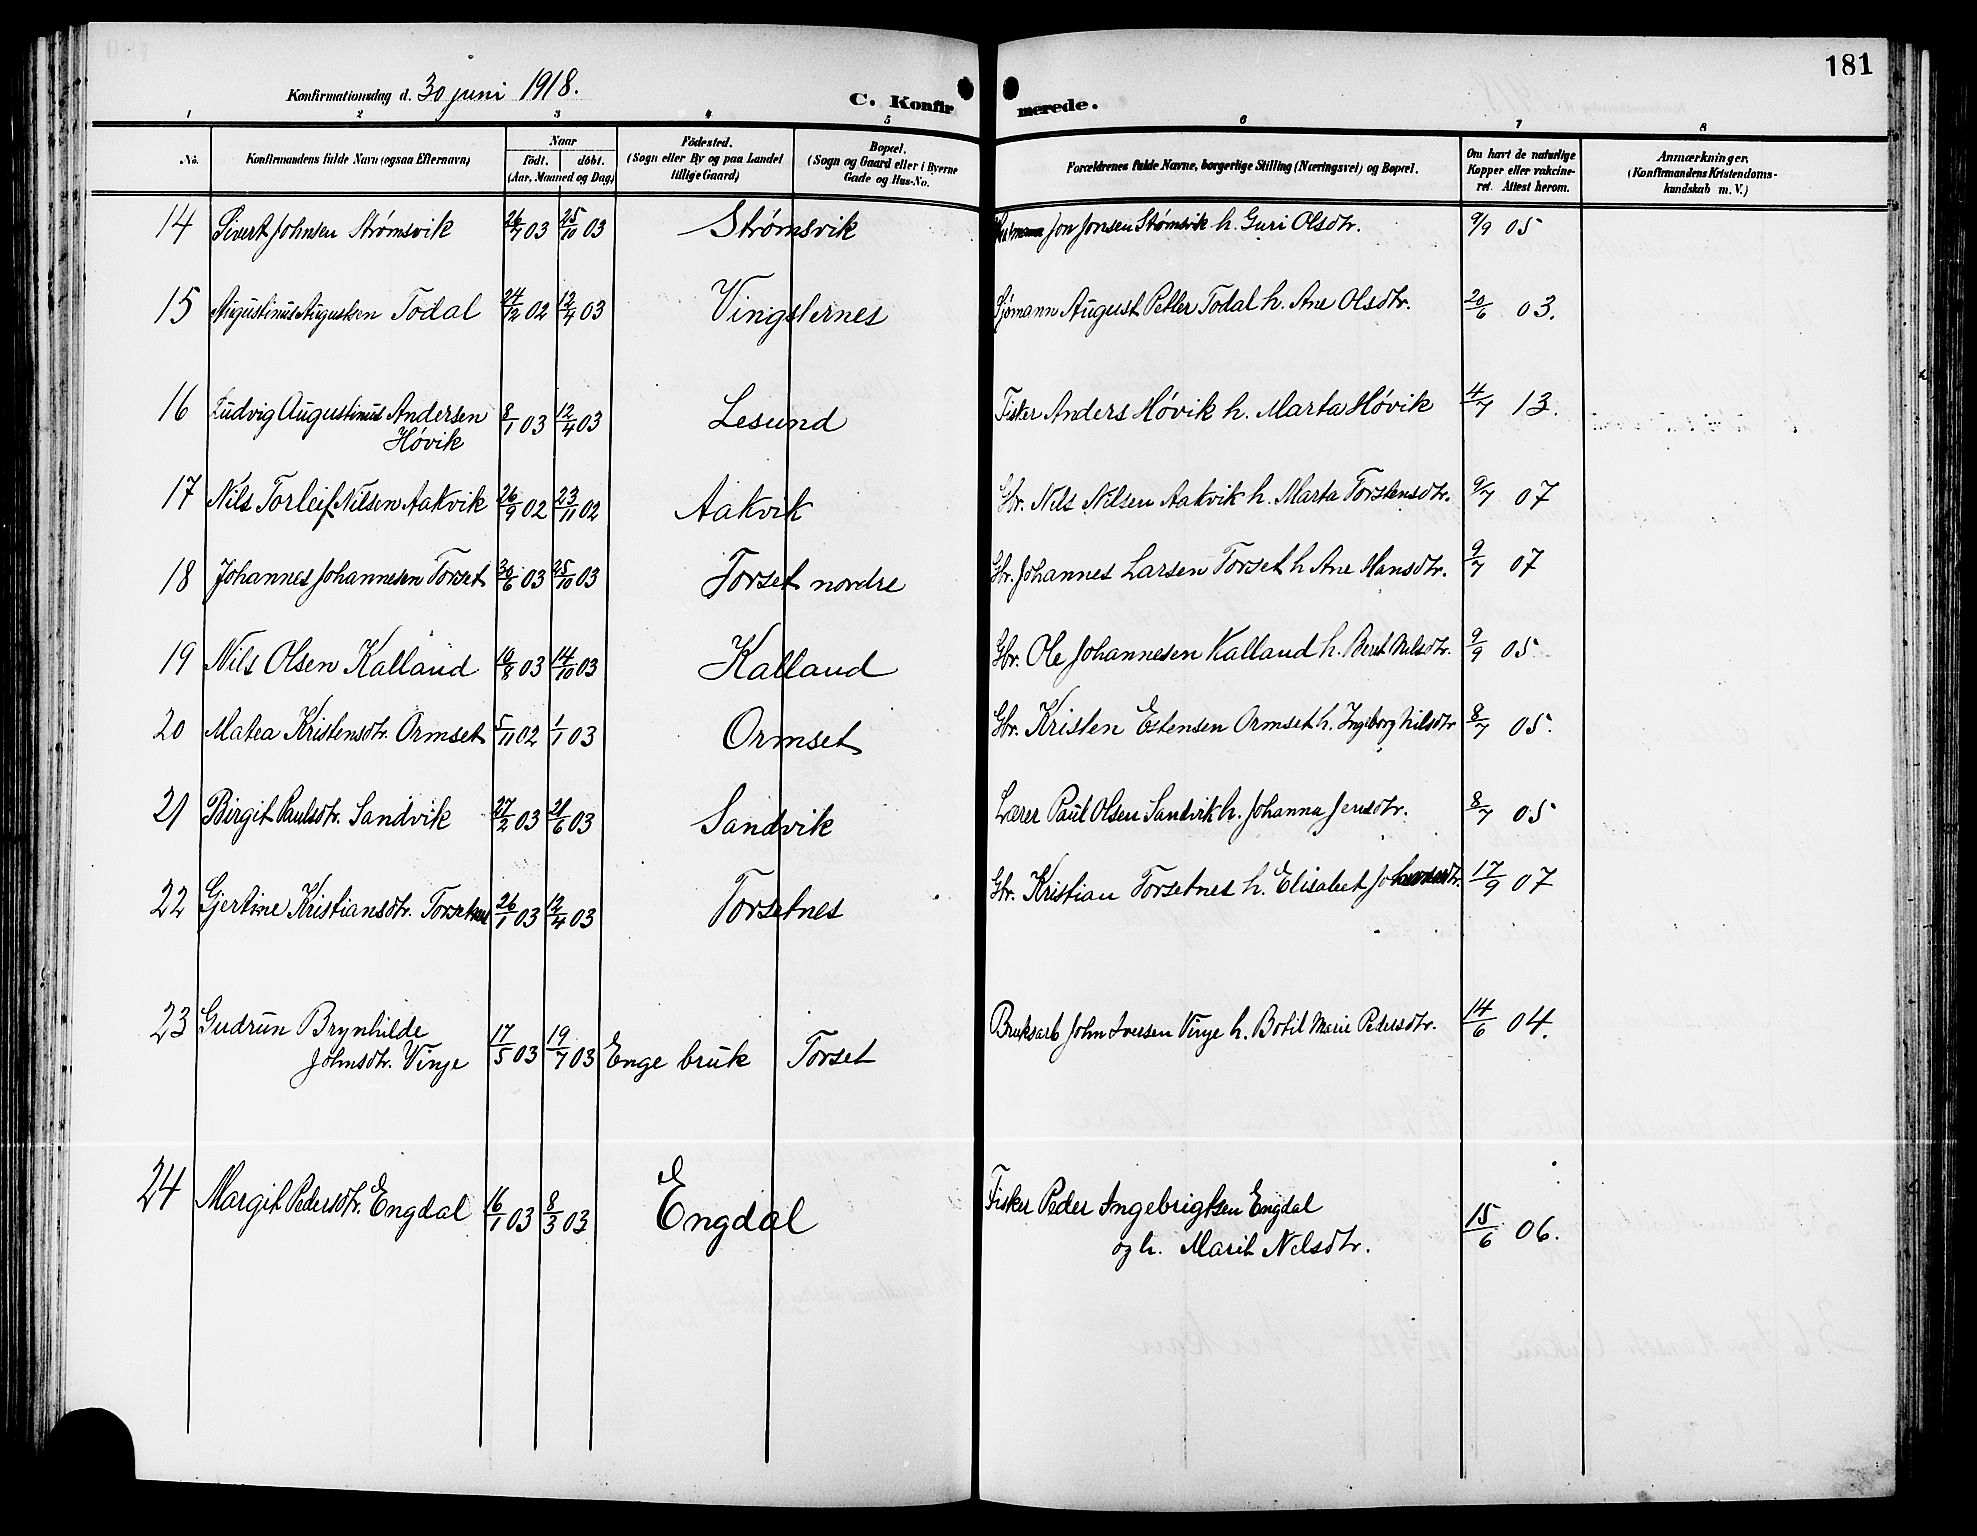 181
Konfirmationsdag d. 30 juni 1918.
C. Konfirmerede.
1 2 3 4 5 6 7 8
No. Konfirmandens fulde Navn (ogsaa Efternavn) Naar født. døbt. (Aar, Maaned og Dag) Fødested. (Sogn eller By og paa Landet tillige Gaard) Bopæl. (Sogn og Gaard eller i Byerne Gade og Hus-No. Forældrenes fulde Navne, borgerlige Stilling (Næringsvei) og Bopæl. Om havt de naturlige Kopper eller vakcineret. Attest herom. Anmærkninger. (Konfirmandens Kristendomskundskab m. V.)
14 Sivert Johnsen Strømsvik 26/7 03 25/10 03 Strømsvik Jon Jonsen Stømsvik h. Guri Olsdtr. 9/9 05
15 Augustinus Augustsen Todal 24/12 02 12/4 03 Vingsternes Sjømann August Petter Todal h. Ane Olsdtr. 20/6 03.
16 Ludvig Augustinus Andersen Høvik 8/1 03 12/4 03 Lesund Fisker Anders Høvik h. Marta Høvik 4/7 13.
17 Nils Torleif Nilsen Aakvik 26/9 02 23/11 02 Aakvik Gbr. Nils Nilsen Aakvik h. Marta Torstensdtr. 9/7 07
18 Johannes Johannesen Torset 30/6 03 25/10 03 Torset nordre Gbr. Johannes Larsen Torset h Ane Hansdtr. 9/7 07
19 Nils Olsen Kalland 19/8 03 14/10 03 Kalland Gbr. Ole Johannesen Kalland h. Beret Nilsdtr. 9/9 05
20 Matea Kristensdtr. Ormset 5/11 02 1/1 03 Ormset Gbr. Kristen Estensen Ormset h. Ingeborg Nilsdtr 8/7 05.
21 Birgit Paulsdtr. Sandvik 27/2 03 21/6 03 Sandvik Lærer Paul Olsen Sandvik h. Johanna Jensdtr. 8/7 05
22 Gjertine Kristiansdtr. Torsetnes 26/1 03 12/4 03 Torsetnes Gbr. Kristian Torsetnes h. Elisabet 17/9 07
23 Gudrun Brynhilde Johnsdtr. Vinje 17/5 03 19/7 03 Enge bruk Torset Bruksarb John Iversen Vinje h. Botil Marie Pedersdtr. 14/6 04.
24 Margit Pedersdtr. Engdal 16/1 03 8/3 03 Engdal Fisker Peder Ingebrigtsen Engdal
og h. Marit Nelsdtr. 15/6 06.